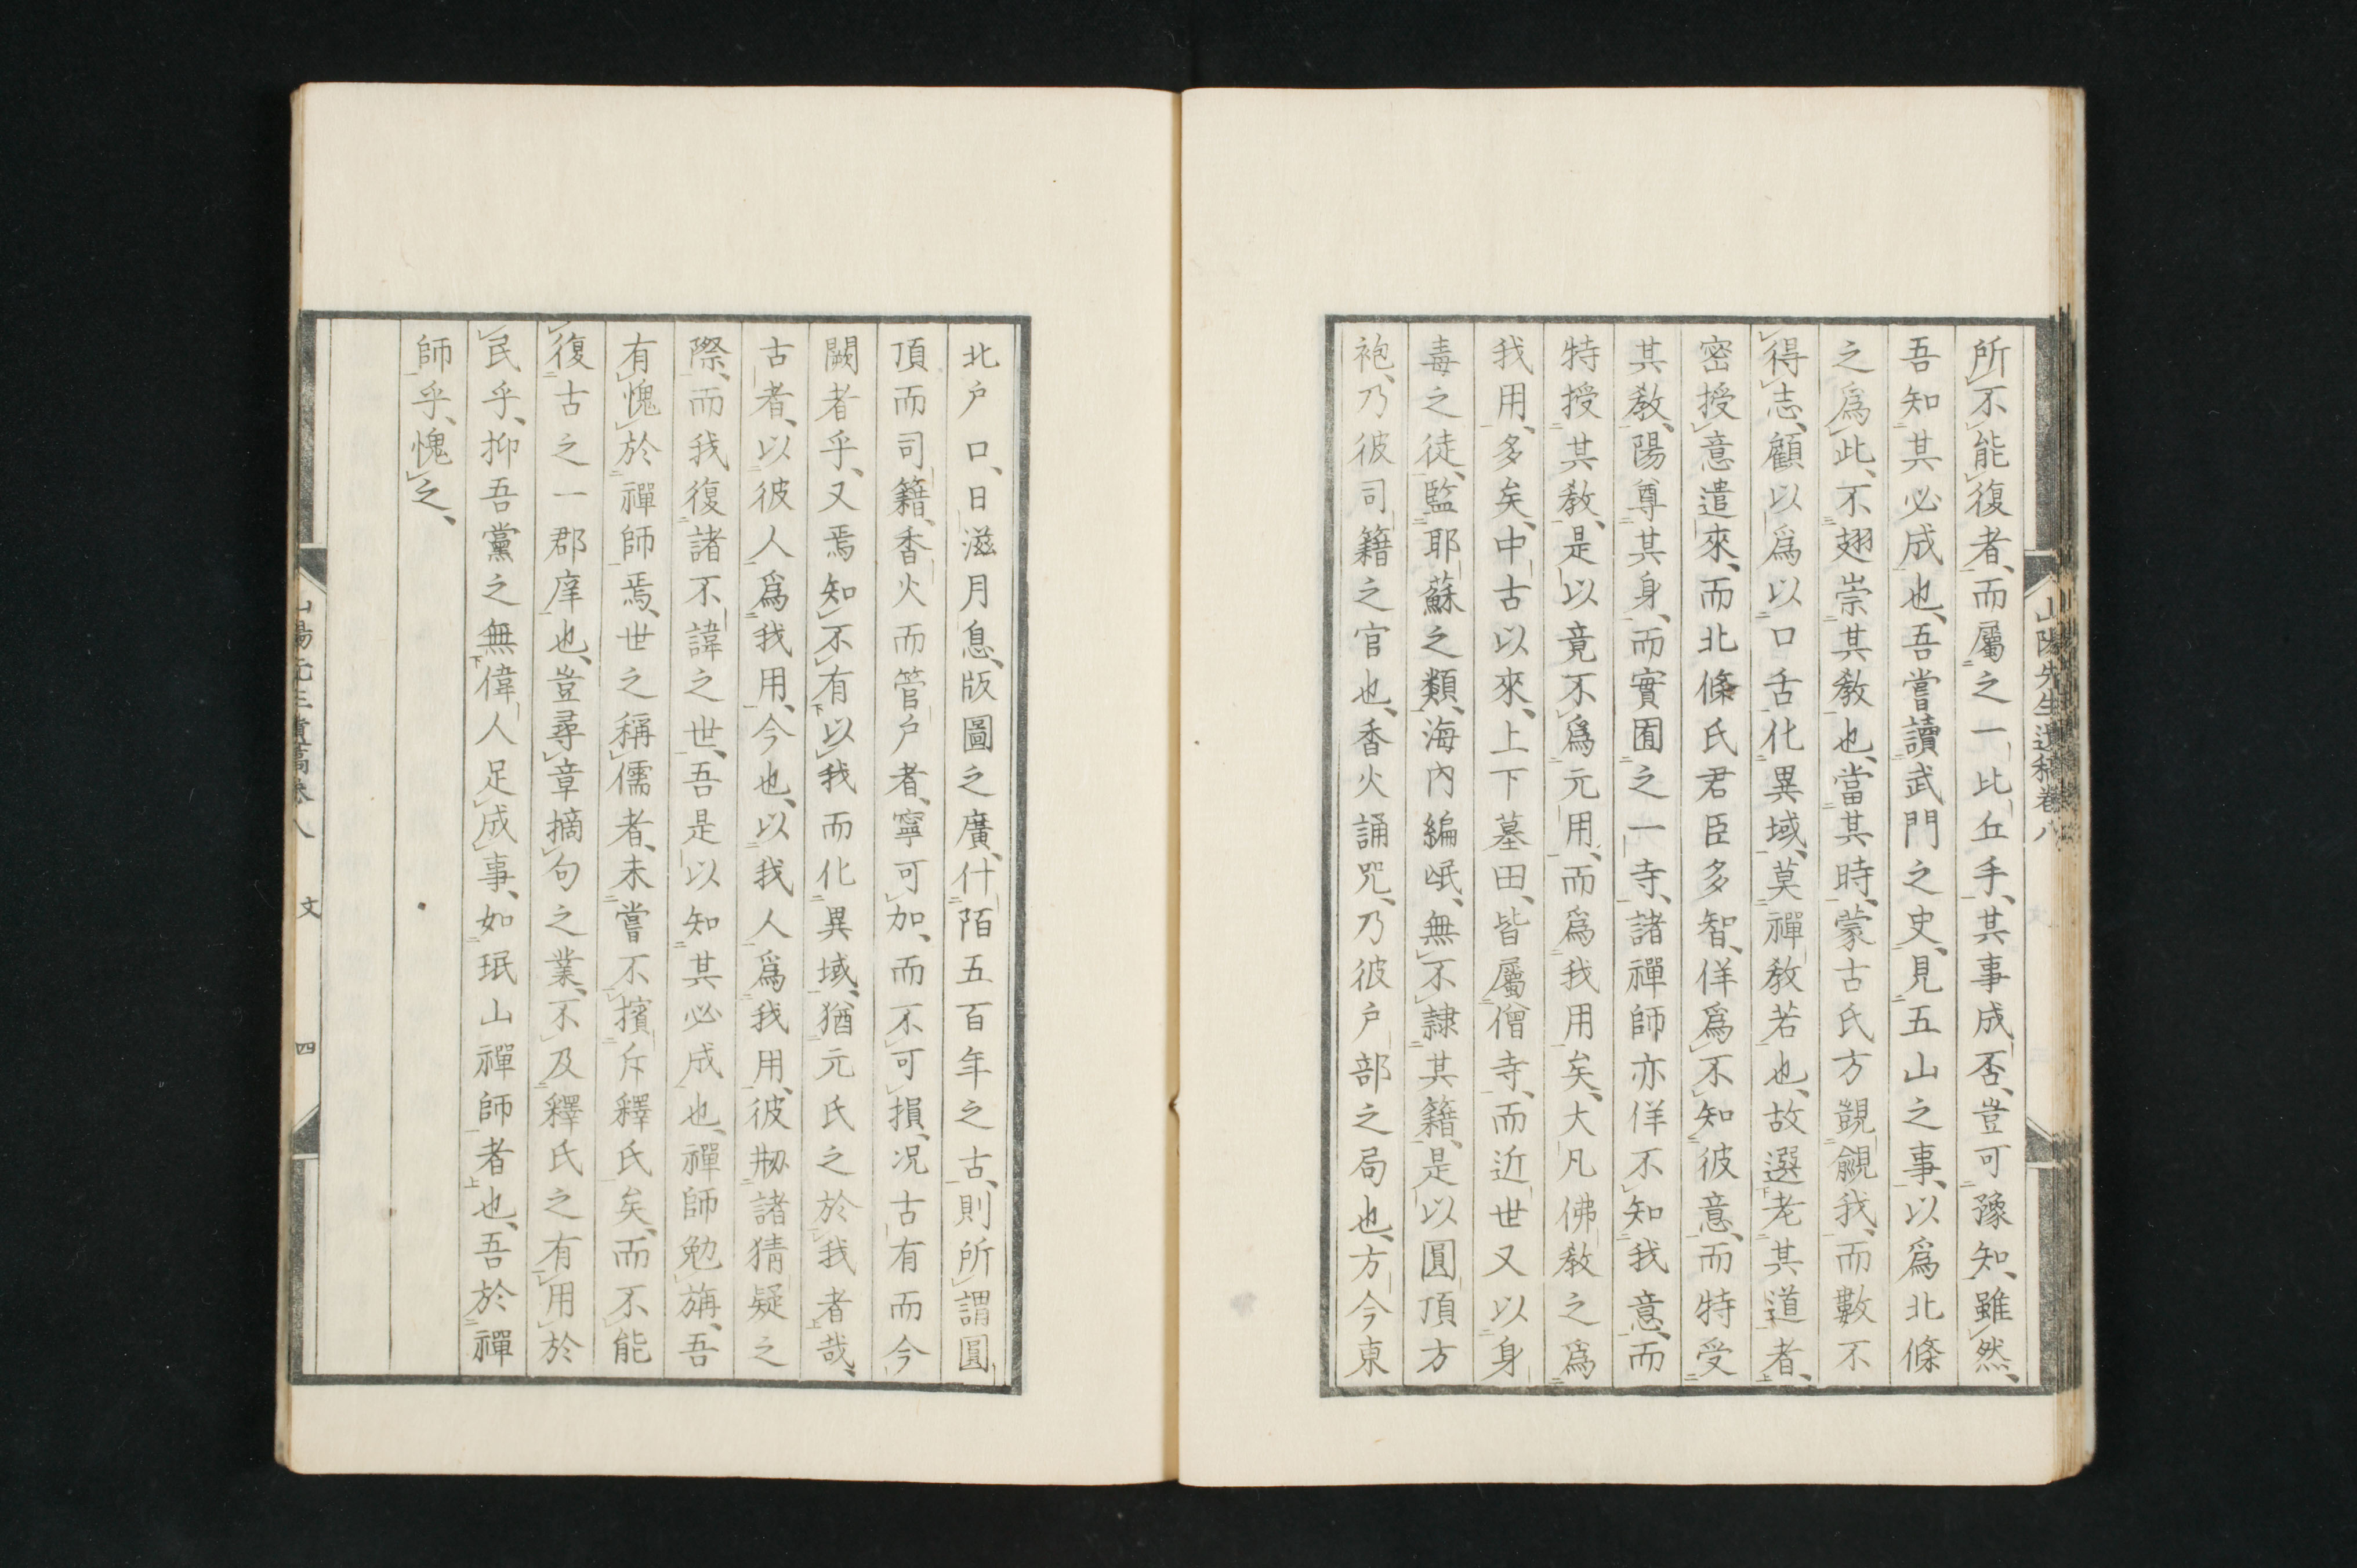 山陽先生遺稿卷八
所不能復者、而屬之一比丘手、其事成否、豈可豫知、雖然、
吾知其必成也、吾嘗讀武門之史、見五山之事、以爲北條
之爲此、不翅崇其教也、當其時、蒙古氏方覬覦我、而數不
得志、顧以爲以口舌化異域、莫禪教若也、故選老其道者、
密授意遣來、而北條氏君臣多智、佯爲不知彼意、而特受
其教、陽尊其身、而實囿之一寺、諸禪師亦佯不知我意、而
特授其教、是以竟不爲元用、而爲我用矣、大凡佛教之爲
我用、多矣、中古以來、上下墓田、皆屬僧寺、而近世又以身
毒之徒、監耶蘇之類、海內編氓、無不隷其籍、是以圓頂方
袍、乃彼司籍之官也、香火誦咒、乃彼戶部之局也、方今東
北戶口、日滋月息、版圖之廣、什陌五百年之古、則所謂圓
頂而司籍、香火而管戶者、寧可加、而不可損、况古有而今
闕者乎、又焉知不有以我而化異域、猶元氏之於我者哉、
古者、以彼人爲我用、今也、以我人爲我用、彼刱諸猜疑之
際、而我復諸不諱之世、吾是以知其必成也、禪師勉旃、吾
有愧於禪師焉、世之稱儒者、未嘗不擯斥釋氏矣、而不能
復古之一郡庠也、豈尋章摘句之業、不及釋氏之有用於
民乎、抑吾黨之無偉人足成事、如珉山禪師者也、吾於禪
師乎、愧之、
山陽先生遺稿卷八 文 四